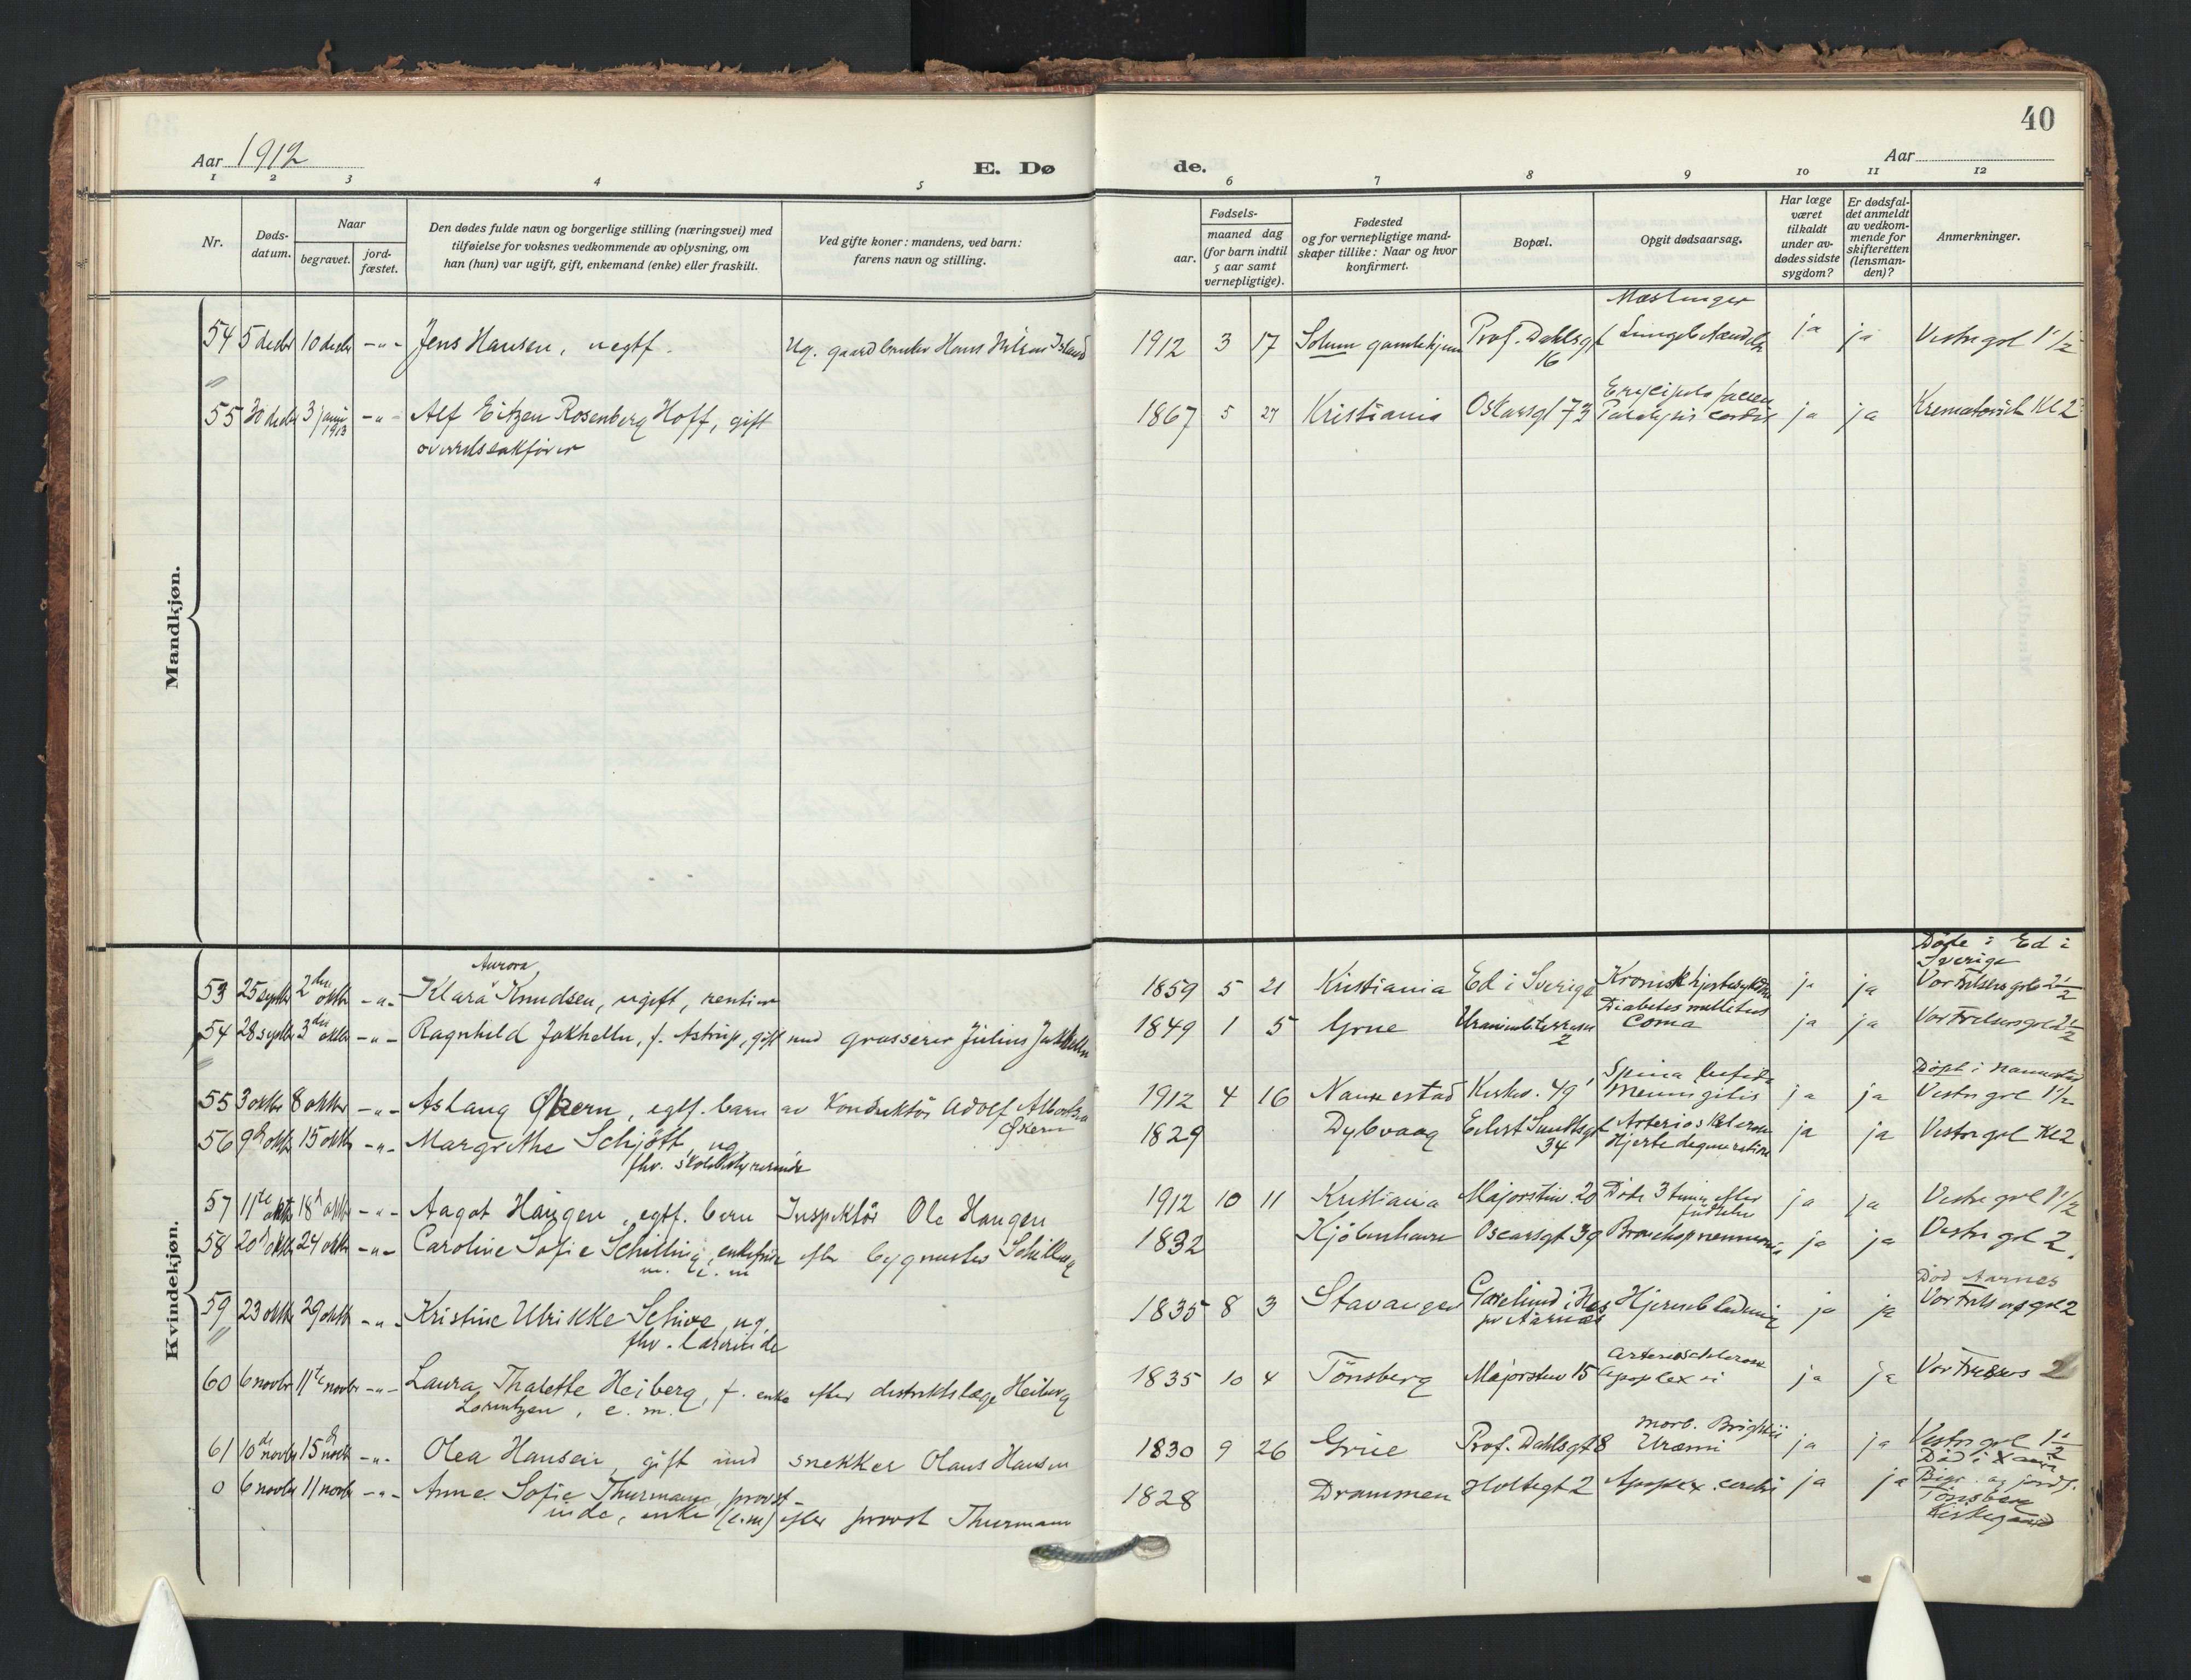 40
Aar 1912
E. Dø
de.
Aar
1 2 3 4 5 6 7 8 9 10 11 12
Nr.
Døds-
datum.
Naar
begravet.
jord-
fæstet.
Den dødes fulde navn og borgerlige stilling (næringsvei) med
tilføielse for voksnes vedkommende av oplysning, om
han (hun) var ugift, gift, enkemand (enke) eller fraskilt.
Ved gifte koner: mandens, ved barn:
farens navn og stilling.
Fødsels-
aar.
maaned dag
(for barn indtil
5 aar samt
vernepligtige).
Fødested
og for vernepligtige mand-
skaper tillike: Naar og hvor
konfirmert.
Bopæl.
Opgit dødsaarsag.
Har læge
været
tilkaldt
under av-
dødes sidste
sygdom?
Er dødsfal-
det anmeldt
av vedkom-
mende for
skifteretten
(lensman-
den)?
Anmerkninger.
Mandkjøn.
Mæslinger
54 5 decbr 10 decbr -"- Jens Hansen, uegtf. Ug. gaardbruker Hans Nilsen 1912 3 17 Solum gamlehjem Prof. Dahlsgt ja ja Vestre grl 1 1/2
16
55 30 decbr 3 januar -"- Alf Eitzen Rosenberg Hoff, gift 1867 5 27 Kristiania Oskarsgt 73 Paralysis cordis ja ja Krematoriet Kl 2
1913
overretssakfører
Kvindekjøn.
Døde i Ed i
Sverige
Aurora
53 25 septbr 2den oktbr -"- Klara Knudsen, ugift, rentier 1859 5 21 Kristiania Ed i Sverige Kronisk hjertesykdom ja ja Vor Frelsers grl 2 1/2
Diabetes mellitus
54 28 septbr 3die oktbr -"- Ragnhild Jakhelln, f. Astrup, gift med grosserer Julius Jakhelln 1849 1 5 Grue Uranienbterrasse coma ja ja Vor Frelsers grl 2 1/2
2
Spina bifida Døpt i Nannestad
55 3 oktbr 8 oktbr -"- Aslaug Økern, egtf. barn av Konduktør Adolf Albert 1912 4 16 Nannestad Kirkev. 49 Meningitis ja ja Vestre grl 1 1/2
Økern
56 9 oktbr 15 oktbr -"- Margrethe Schjøtt, ug. 1829 Dybvaag Eilert Sundtsgt Arteriosklerose ja ja Vestre grl Kl 2
fhv. skolebestyrerinde 34 Hjertedegeneration
57 11te oktbr 18 oktbr -"- Aagot Haugen, egtf. barn Inspektør Ole Haugen 1912 10 11 Kristiania Majorstuv. 20 Døde 3 timer efter ja ja Vestre grl 1 1/2
fødselen
58 20 oktbr 24 oktbr -"- Caroline Sofie Schilling, enkefrue efter bygmester Schilling 1832 Kjøbenhavn Oscarsgt 39 Bronchopneumonie ja ja Vestre grl 2.
Død Aarnes
59 23 oktbr 29 oktbr -"- Kristine Ulrikke Schive, ug. 1835 8 3 Stavanger i Nes Hjerneblødning ja ja Vor Frelsers grl 2
fhv. lærerinde pr Aarnæs
Arteriosklerose
60 6 novbr 11te novbr -"- Laura Thalette Heiberg, f. enke efter distriktslæge Heiberg 1835 10 4 Tønsberg Majorstuv 15 apoplexi ja ja Vor Frelsers 2
Lorentzen, e. m.
Morb. Brightii
61 10de novbr 15d novbr -"- Olea Hansen, gift med snekker Olaus Hansen 1830 9 26 Grue Prof. Dahlsgt 8 Uræmi ja ja Vestre grl 1 1/2
Død i Xania
0 6 novbr 11 novbr -"- Anne Sofie Thurmann, provst- 1828 Drammen Holtegt 2 Apoplex. cerebri ja ja Begr. og jordf.
inde, enke (e.m) efter provst Thurmann Tønsberg
Kirkegaard